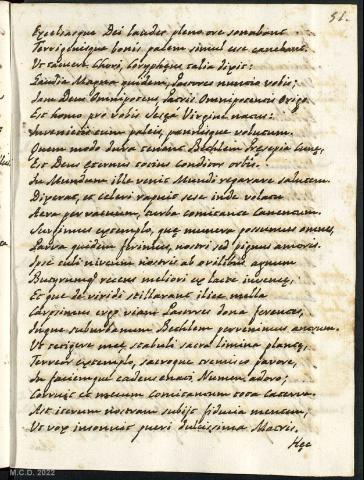 51.
Excelsasque Dei laudes pleno ore sonabant
Terrigenisque bonis pacem simul esse canebant.
Ut tacuit Chori, Coryphęus talia dixit:
Gaudia Magna quidem, Pastores nuncio vobis;
Jam Deus Omnipotens Patris Omnipotentis Origo
Est homo pro vobis Virgine natus:
Invenietis eum paleis, pannisque volutum.
Quem modo Bethlem Pręsepia
Est Deus ęternus totius conditor orbis.
In Mundum ille venit Mundi reparare salutem.
Dixerat, et celeri rapuit sese inde volatu
Aera per vacuum, turba comitante Canentum.
Surgimus extemplo, quę munera possumus omnes,
Parva quidem ferimus, nostri sed pignus amoris.
niveum nostris ab ovilibus agnum
Butyrumque recens meliori ex lacte
Et quę de viridi stillarant ilice mella
Carpsimus ergo viam Pastores dona ferentes,
Inque suburbanum Bethlem pervenimus antrum.
Ut tetigere meę stabuli sacra limina plantę,
Terreor extemplo, sacroque tremisco pavore,
In faciemque cadens Numen adoro;
Corruit et mecum Comitantum tota Caterva.
Ast iterum nostram subijt fiducia mentem,
Ut vox insonuit pueri dulcissima Matris.
Hęc
M.C.D. 2022